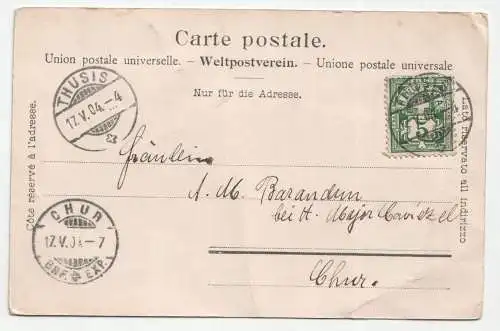 Carte postale.
Union postale universelle. – Weltpostverein. – Unione postale universale
Nur für die Adresse.
Côté réservé à l'adresse.
Lato riservato all' indirizzo
THUSIS
17.V.04.–4
CHUR
17.V.04–7
BRF. EXP.
5
Fräulein
A. M. Barandun
bei H. Major
Chur.